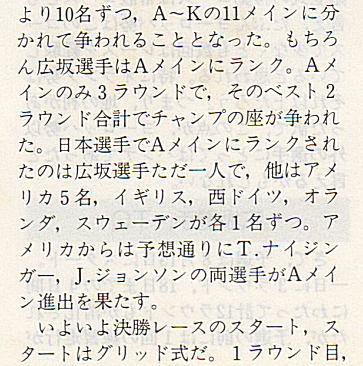 より10名ずつ，A～Kの11メインに分
かれて争われることとなった。もちろ
ん広坂選手はAメインにランク。Aメ
インのみ3ラウンドで，そのベスト2
ラウンド合計でチャンプの座が争われ
た。日本選手でAメインにランクされ
たのは広坂選手ただ一人で，他はアメ
リカ5名，イギリス，西ドイツ，オラ
ンダ，スウェーデンが各1名ずつ。ア
メリカからは予想通りにT.ナイジン
ガー，J.ジョンソンの両選手がAメイ
ン進出を果たす。
　いよいよ決勝レースのスタート，ス
タートはグリッド式だ。1ラウンド目，